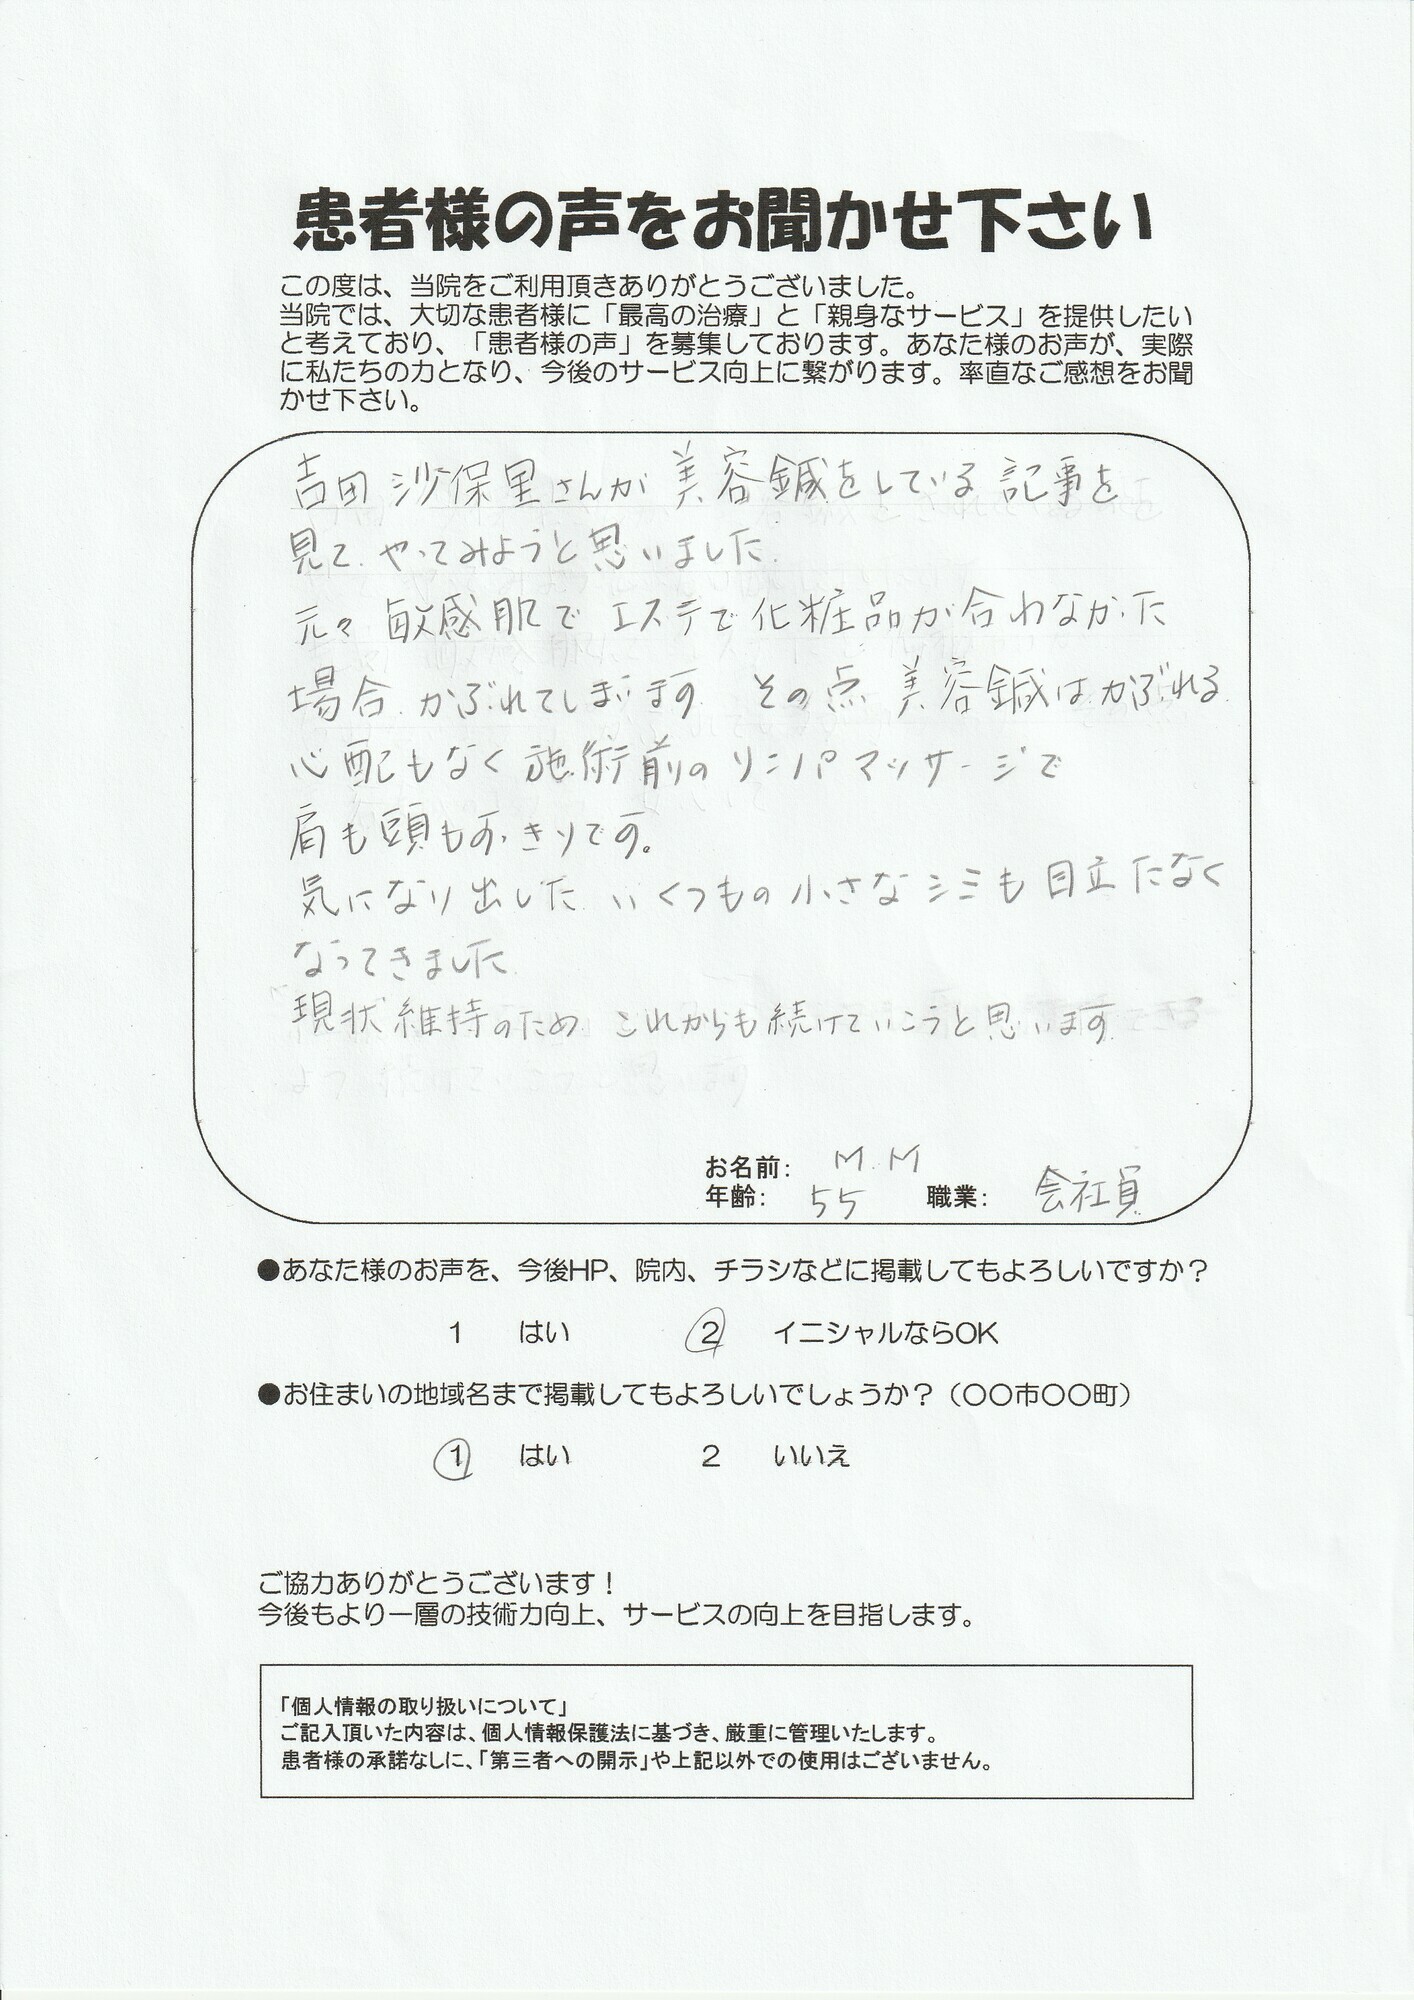 患者様の声をお聞かせ下さい
この度は、当院をご利用頂きありがとうございました。
当院では、大切な患者様に「最高の治療」と「親身なサービス」を提供したい
と考えており、「患者様の声」を募集しております。あなた様のお声が、実際
に私たちの力となり、今後のサービス向上に繋がります。率直なご感想をお聞
かせ下さい。
吉田沙保里さんが美容鍼をしている記事を
見て、やってみようと思いました。
元々敏感肌でエステで化粧品が合わなかった
場合、かぶれてしまいます。その点美容鍼はかぶれる
心配もなく施術前のリンパマッサージで
肩も頭もすっきりです。
気になり出したいくつもの小さなシミも目立たなく
なってきました。
現状維持のためこれからも続けていこうと思います
お名前: M.M
年齢: 55 職業: 会社員
●あなた様のお声を、今後HP、院内、チラシなどに掲載してもよろしいですか？
1 はい 2 イニシャルならOK
●お住まいの地域名まで掲載してもよろしいでしょうか？（〇〇市〇〇町）
1 はい 2 いいえ
ご協力ありがとうございます！
今後もより一層の技術力向上、サービスの向上を目指します。
「個人情報の取り扱いについて」
ご記入頂いた内容は、個人情報保護法に基づき、厳重に管理いたします。
患者様の承諾なしに、「第三者への開示」や上記以外での使用はございません。